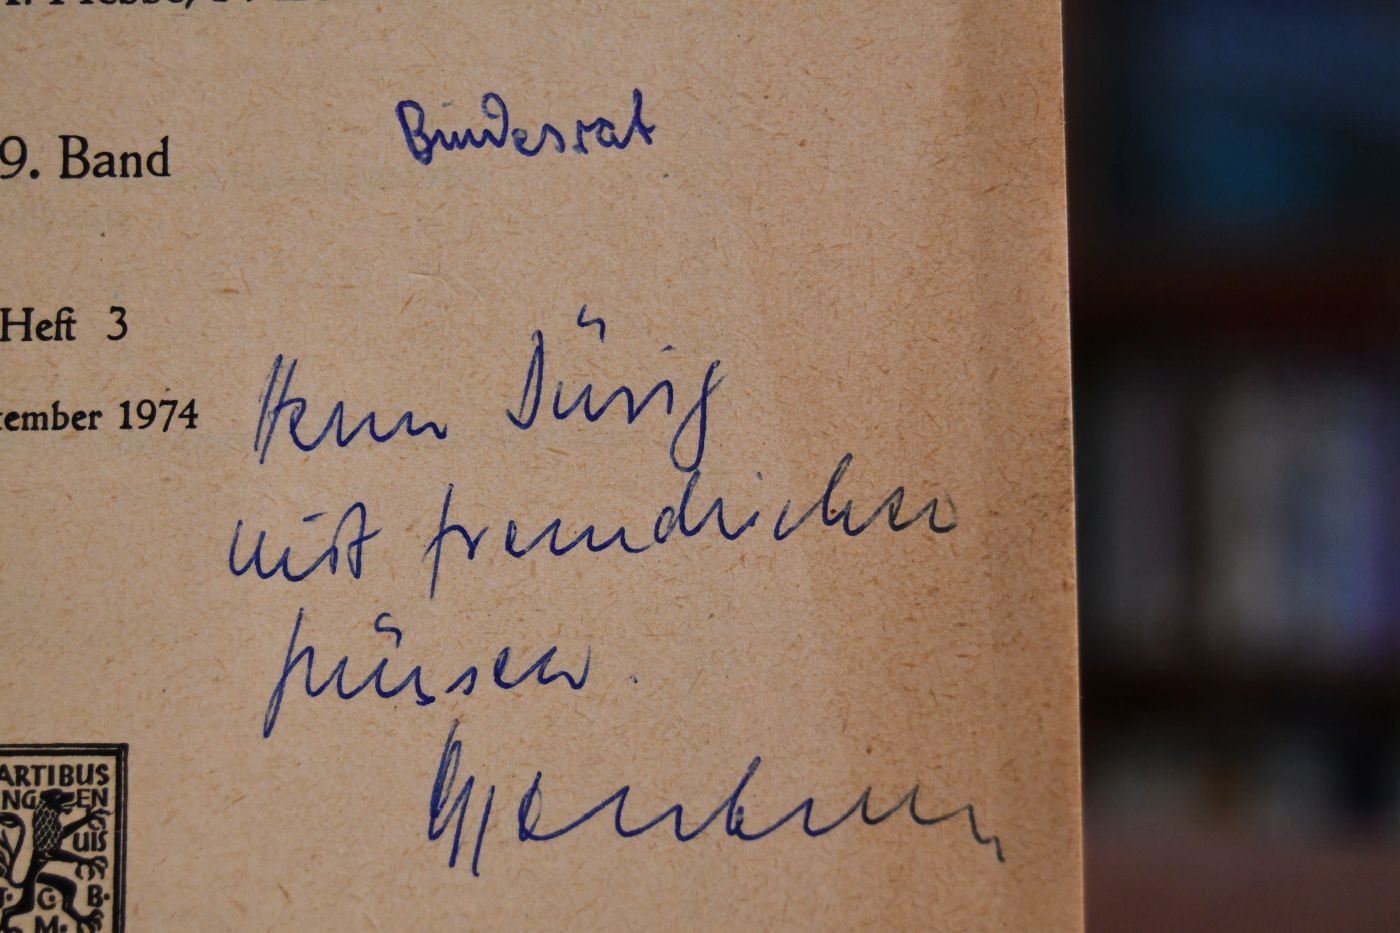 Bundesrat
9. Band
Heft 3
tember 1974
Herrn Dürig
mit freundlichen
Grüssen.
ARTIBUS
ING EN
UIS
C. B.
M.